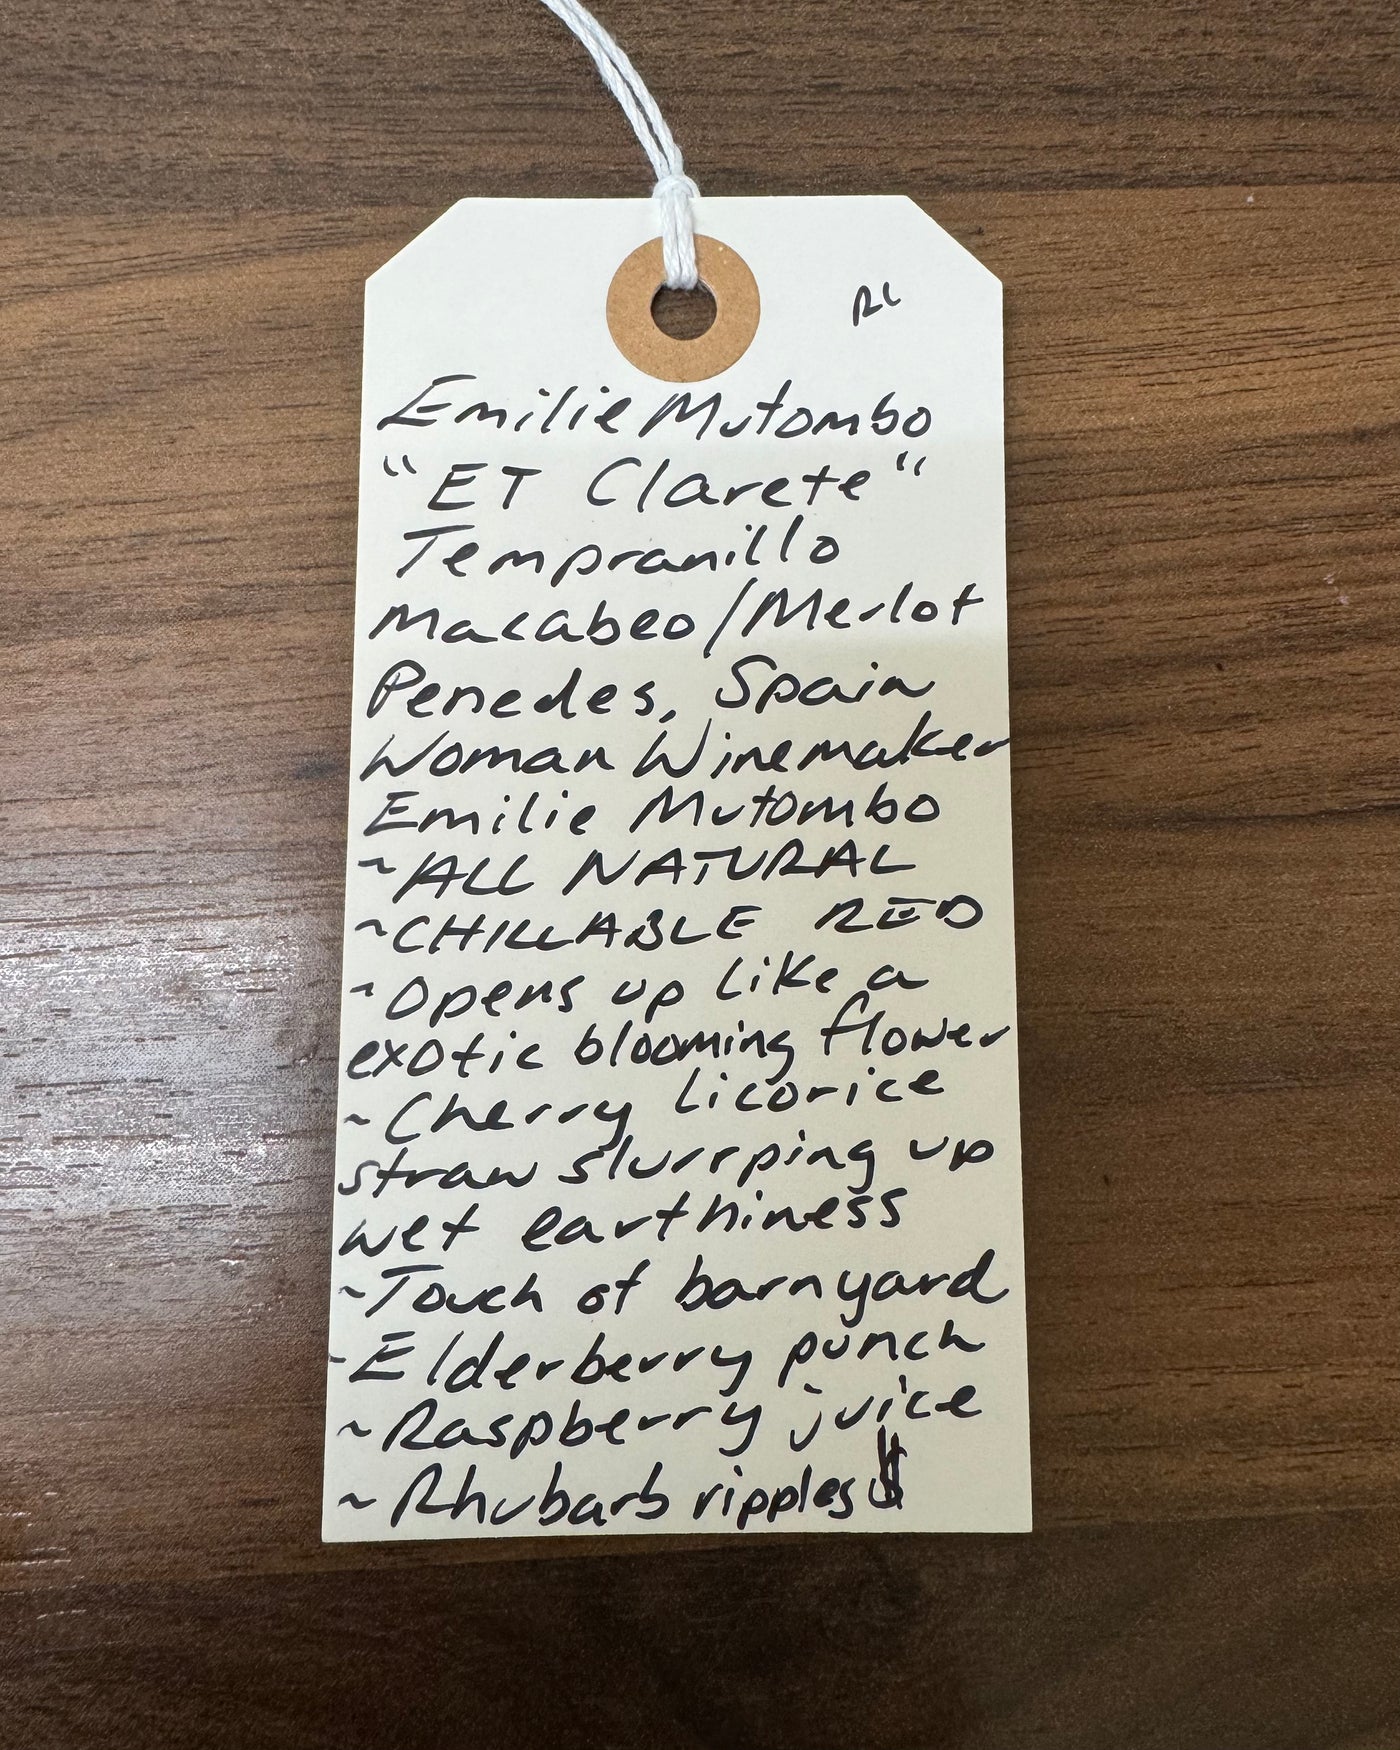 RL
Emilie Mutombo
"ET Clarete"
Tempranillo
Macabeo/Merlot
Penedes, Spain
Woman Winemaker
Emilie Mutombo
~ALL NATURAL
~CHILLABLE RED
~Opens up like a
exotic blooming flower
~Cherry licorice
straw slurrping up
wet earthiness
~Touch of barnyard
-Elderberry punch
~Raspberry juice
~Rhubarb ripples